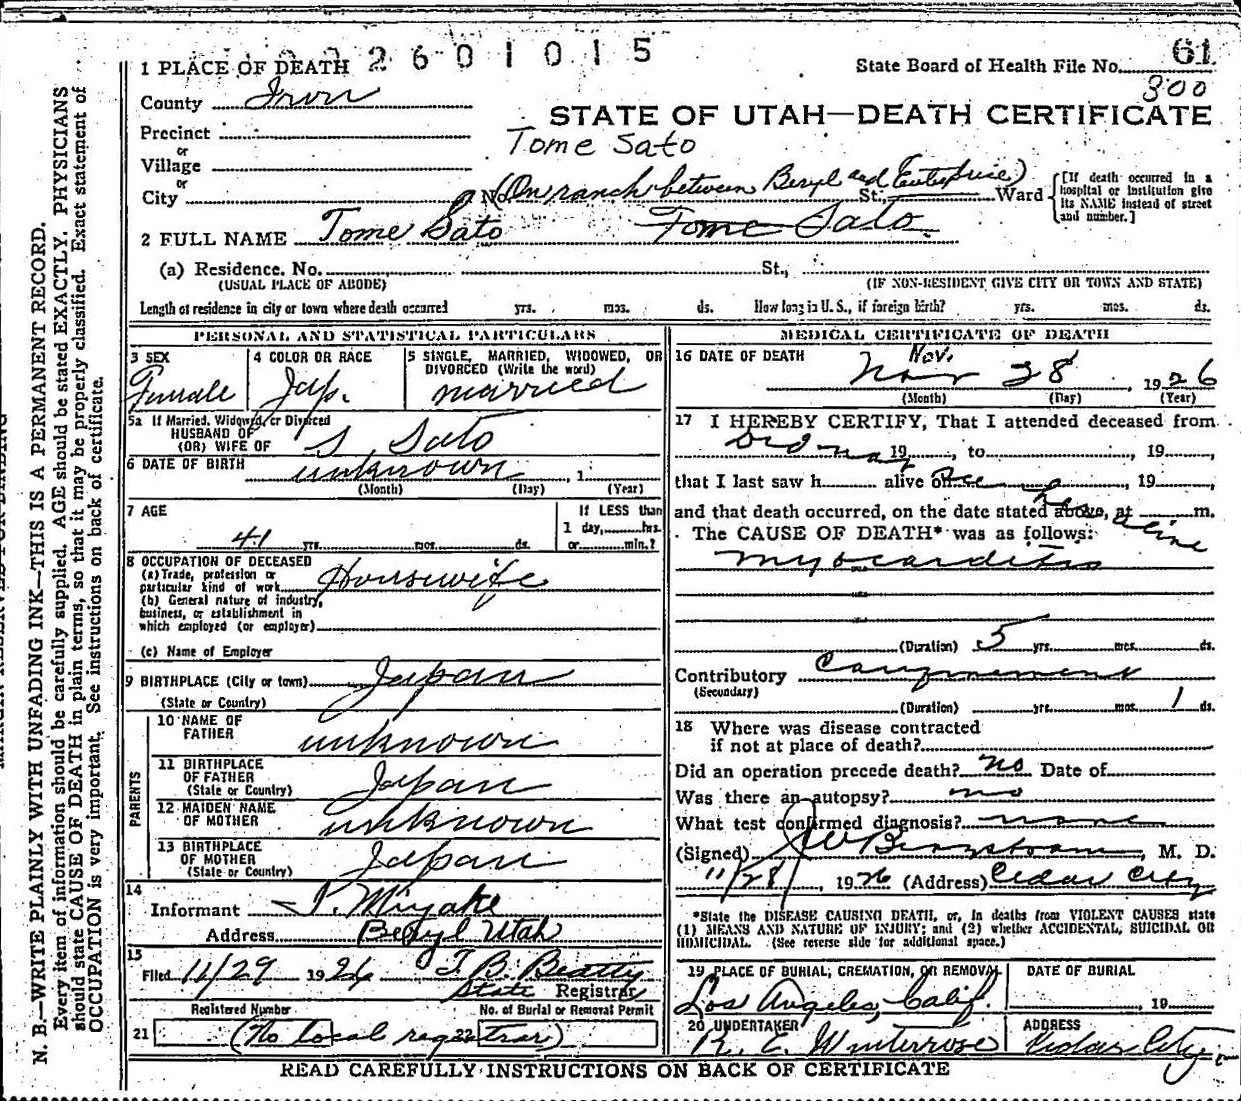 2 6 0 1 0 1 5
61
1 PLACE OF DEATH
State Board of Health File No.
300
County Iron
STATE OF UTAH—DEATH CERTIFICATE
Precinct
or
Tome Sato
Village
or
City
No. (On ranch between Beryl and Enterprise) St. Ward
[If death occurred in a
hospital or institution give
its NAME instead of street
and number.]
2 FULL NAME Tome Sato Tome Sato
(a) Residence. No. St.,
(USUAL PLACE OF ABODE) (IF NON-RESIDENT GIVE CITY OR TOWN AND STATE)
Length of residence in city or town where death occurred yrs. mos. ds. How long in U. S., if foreign birth? yrs. mos. ds.
PERSONAL AND STATISTICAL PARTICULARS
3 SEX
Female
4 COLOR OR RACE
Jap.
5 SINGLE, MARRIED, WIDOWED, OR
DIVORCED (Write the word)
married
5a If Married, Widowed, or Divorced
HUSBAND OF
(OR) WIFE OF S. Sato
6 DATE OF BIRTH unknown, 1
(Month) (Day) (Year)
7 AGE
41 yrs. mos. ds.
If LESS than
1 day, hrs.
or min.?
8 OCCUPATION OF DECEASED
(a) Trade, profession or
particular kind of work Housewife
(b) General nature of industry,
business, or establishment in
which employed (or employer)
(c) Name of Employer
9 BIRTHPLACE (City or town) Japan
(State or Country)
PARENTS
10 NAME OF
FATHER unknown
11 BIRTHPLACE
OF FATHER Japan
(State or Country)
12 MAIDEN NAME
OF MOTHER unknown
13 BIRTHPLACE
OF MOTHER Japan
(State or Country)
14
Informant P. Miyake
Address Beryl Utah
15
Filed 11/29 1926 T. B. Beatty
State Registrar
Registered Number No. of Burial or Removal Permit
21 (No local registrar) 22
MEDICAL CERTIFICATE OF DEATH
16 DATE OF DEATH
Nov.
Nov 28, 1926
(Month) (Day) (Year)
17 I HEREBY CERTIFY, That I attended deceased from
Did not 19, to, 19,
that I last saw h alive on see her, 19,
and that death occurred, on the date stated above, at m.
alive
The CAUSE OF DEATH* was as follows:
myocarditis
(Duration) 5 yrs. mos. ds.
Contributory Confinement
(Secondary)
(Duration) yrs. mos. 1 ds.
18 Where was disease contracted
if not at place of death?
Did an operation precede death? no Date of
Was there an autopsy? no
What test confirmed diagnosis? none
(Signed) J W Bergstrom, M. D.
11/28, 1926 (Address) Cedar City
*State the DISEASE CAUSING DEATH, or, in deaths from VIOLENT CAUSES state
(1) MEANS AND NATURE OF INJURY; and (2) whether ACCIDENTAL, SUICIDAL OR
HOMICIDAL. (See reverse side for additional space.)
19 PLACE OF BURIAL, CREMATION, OR REMOVAL
Los Angeles, Calif.
DATE OF BURIAL
19
20 UNDERTAKER
R. E. Winterrose
ADDRESS
Cedar City
READ CAREFULLY INSTRUCTIONS ON BACK OF CERTIFICATE
N. B.—WRITE PLAINLY WITH UNFADING INK—THIS IS A PERMANENT RECORD.
Every item of information should be carefully supplied. AGE should be stated EXACTLY. PHYSICIANS
should state CAUSE OF DEATH in plain terms, so that it may be properly classified. Exact statement of
OCCUPATION is very important. See instructions on back of certificate.